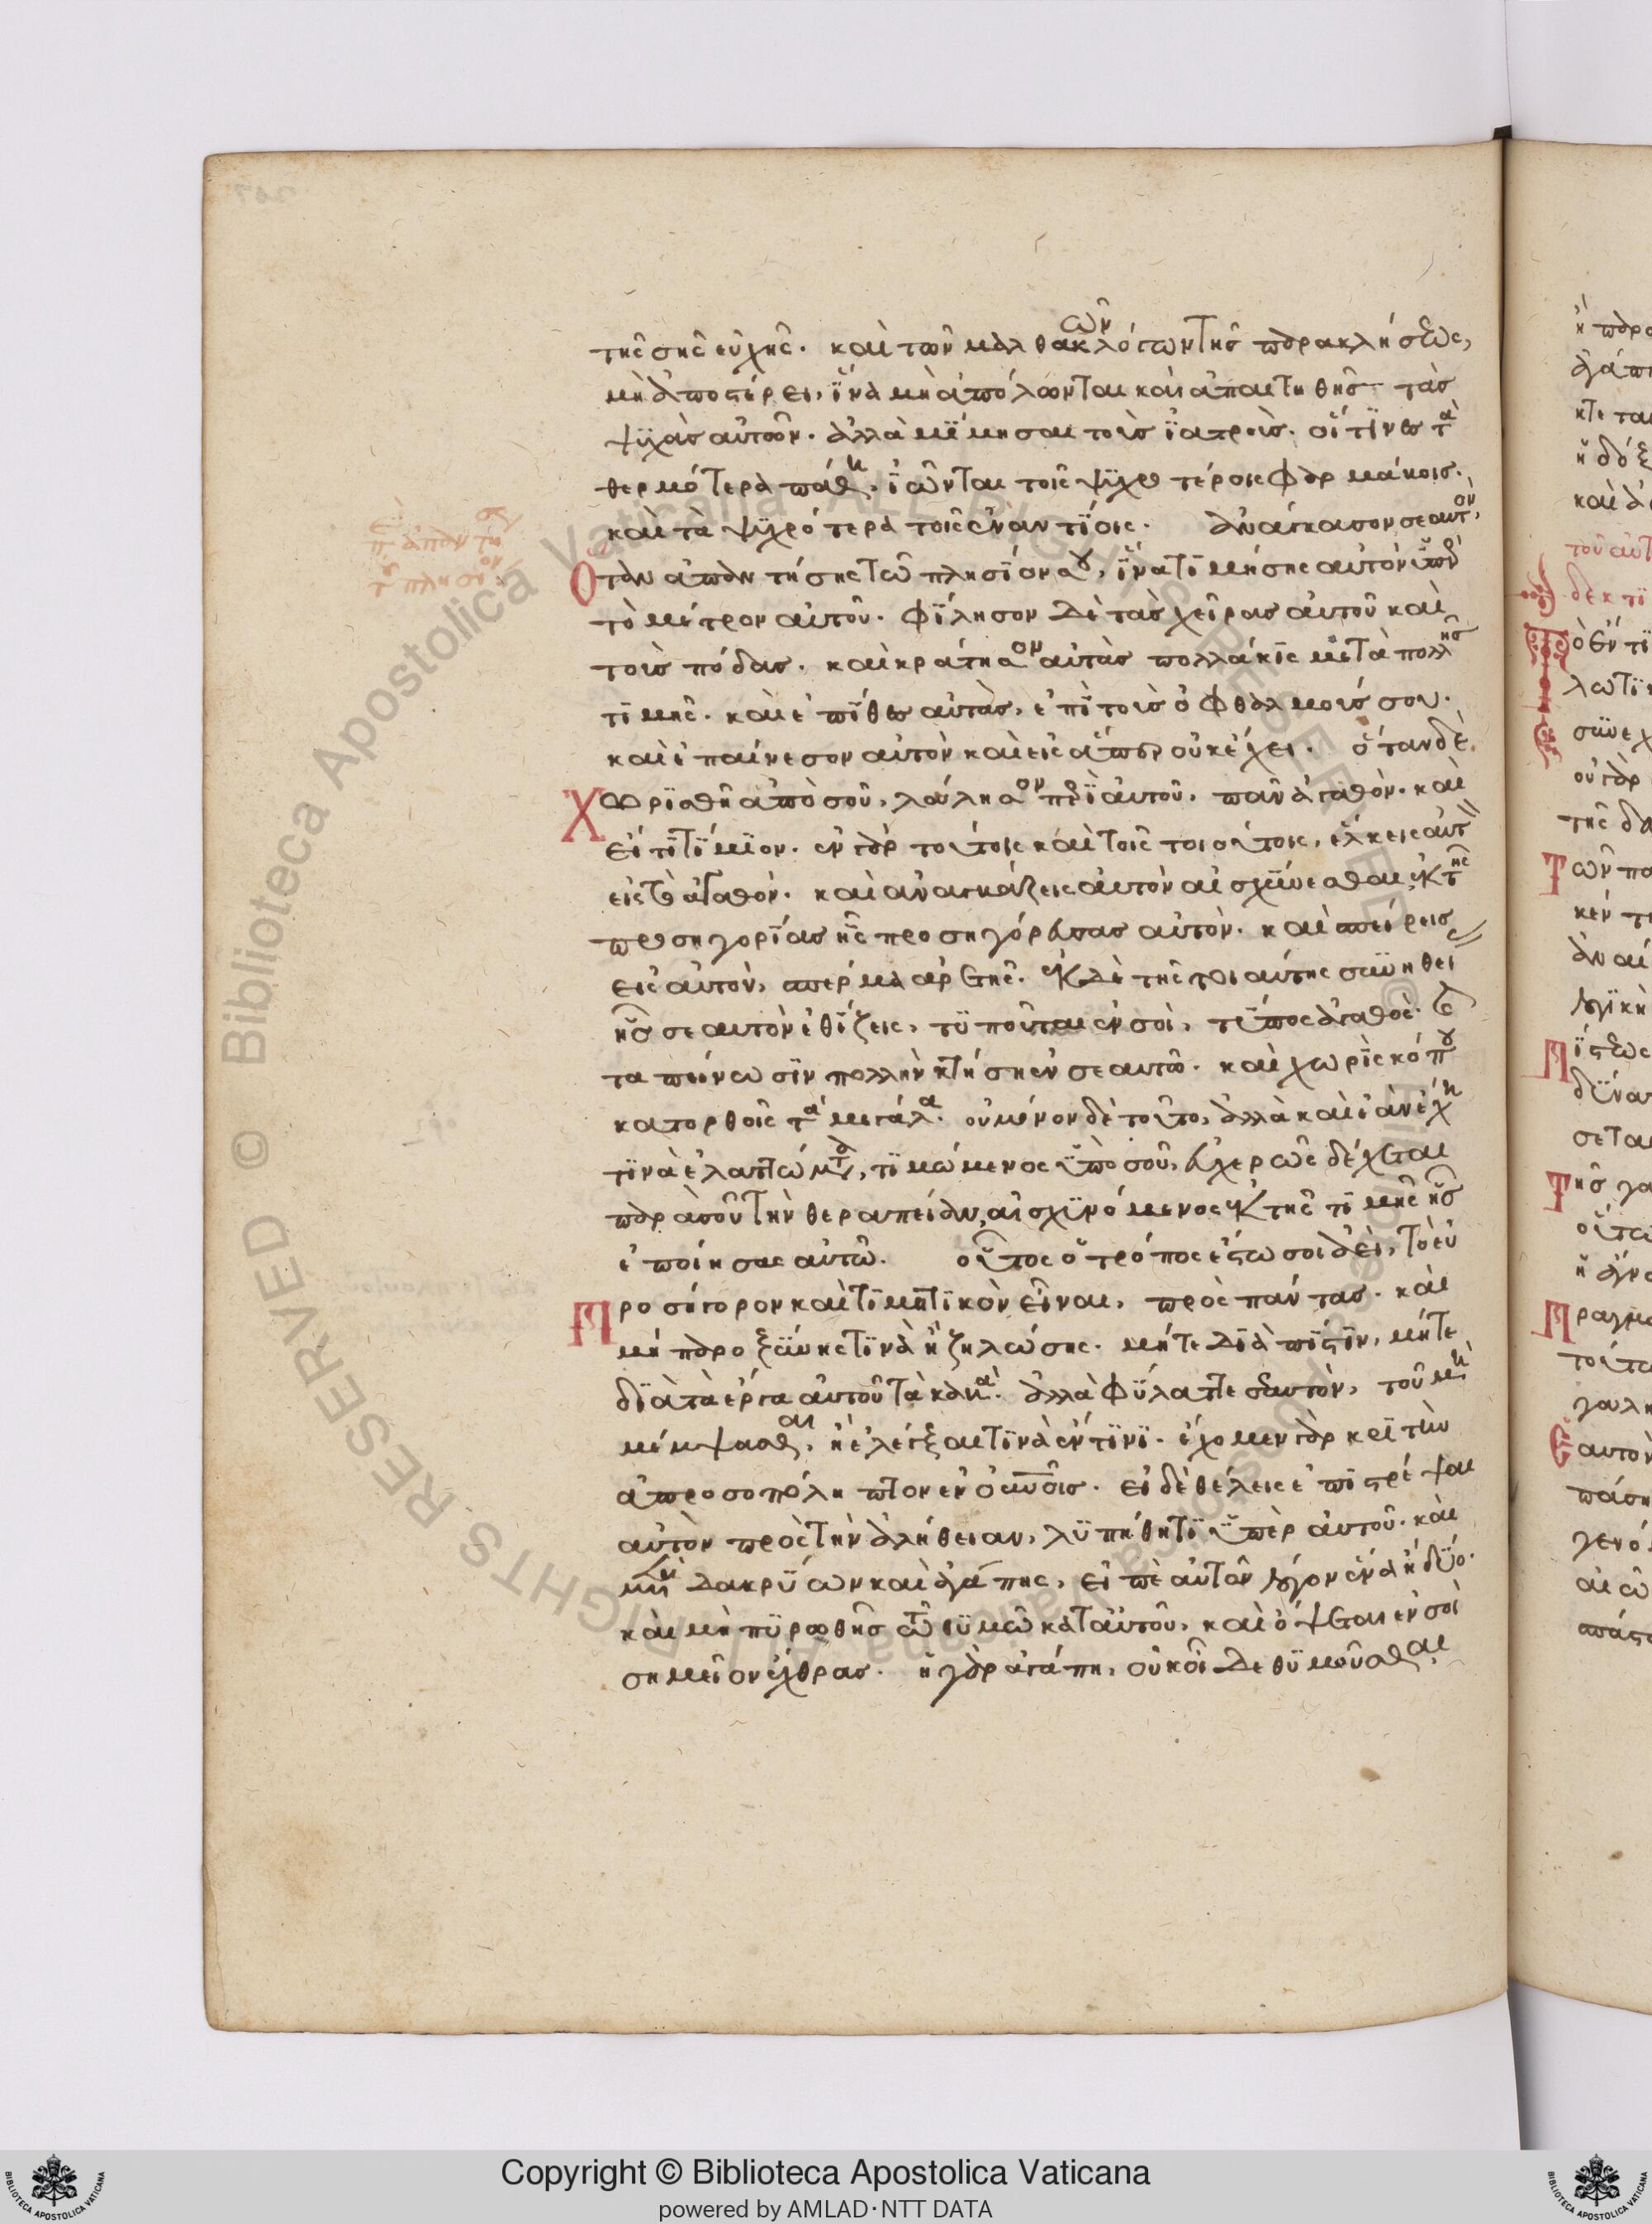 τῆς σῆς εὐχῆς. καὶ τῶν μαλθακῶν λόγων τῆς παρακλήσεως,
μὴ ἀποστέρει, ἵνα μὴ ἀπόλωνται καὶ ἀπαιτηθῇς τὰς
ψυχὰς αὐτῶν. ἀλλὰ μίμησαι τοὺς ἰατροὺς. οἵτινες τὰ
θερμότερα πάθη, ἰῶνται τοῖς ψυχροτέροις φαρμάκοις.
καὶ τὰ ψυχρότερα τοῖς ἐναντίοις. ἀνάγκασον σεαυτὸν,
ὅταν ἀπαντήσῃς τῶ πλησίον σου, ἵνα τιμήσῃς αὐτὸν ὑπὲρ
τὸ μέτρον αὐτοῦ. φίλησον δὲ τὰς χεῖρας αὐτοῦ καὶ
τοὺς πόδας. καὶ κράτησον αὐτὰς πολλάκις μετὰ πολλῆς
τιμῆς. καὶ ἐπίθες αὐτὰς, ἐπὶ τοὺς ὀφθαλμούς σου.
καὶ ἐπαίνεσον αὐτὸν καὶ εἰς ἅπερ οὐκ ἔχει. ὅταν δὲ
χωρισθῇ ἀπὸ σοῦ, λάλησον περὶ αὐτοῦ. πᾶν ἀγαθὸν. καὶ
εἴ τι τίμιον. ἐν γὰρ τούτοις καὶ τοῖς τοιούτοις, ἕλκεις αὐτ
εἰς τὸ ἀγαθόν. καὶ ἀναγκάζεις αὐτὸν αἰσχύνεσθαι ἐκ τῆς
προσηγορίας ἧς προσηγόρευσας αὐτὸν. καὶ σπείρεις
εἰς αὐτὸν, σπέρμα ἀρετῆς. ἐκ δὲ τῆς τοιαύτης συνηθεί
ἧς σεαυτὸν ἐθίζεις, τυποῦται ἐν σοὶ, τύπος ἀγαθὸς. καὶ
ταπείνωσιν πολλὴν κτήσῃ ἐν σεαυτῶ. καὶ χωρὶς κόπου
κατορθοῖς τὰ μεγάλα. οὐ μόνον δὲ τοῦτο, ἀλλὰ καὶ ἐὰν ἔχῃ
τινὰ ἐλαττώματα, τιμώμενος ὑπὸ σοῦ, εὐχερῶς δέχεται
παρὰ σοῦ τὴν θεραπείαν, αἰσχυνόμενος ἐκ τῆς τιμῆς ἧς
ἐποίησας αὐτῶ. οὗτος ὁ τρόπος ἔστω σοι ἀεὶ, τὸ εὐ
προσήγορον καὶ τιμητικὸν εἶναι, πρὸς πάντας. καὶ
μὴ παροξύνῃς τινὰ ἢ ζηλώσῃς. μήτε διὰ πίστιν, μήτε
διὰ τὰ ἔργα αὐτοῦ τὰ κακὰ. ἀλλὰ φύλαττε σεαυτὸν, τοῦ μὴ
μέμψασθαι, ἢ ἐλέγξαι τινὰ ἔν τινι. ἔχομεν γὰρ κριτὴν
ἀπροσωπόληπτον ἐν οὐνοῖς. εἰ δὲ θέλεις ἐπιστρέψαι
αὐτὸν πρὸς τὴν ἀλήθειαν, λυπήθητι ὑπὲρ αὐτοῦ. καὶ
μετὰ δακρύων καὶ ἀγάπης, εἰπὲ αὐτὸν λόγον ἕνα ἢ δύο.
καὶ μὴ πυρωθῇς τῶ θυμῶ κατ αὐτοῦ, καὶ ὄψεται ἐν σοὶ
σημεῖον ἔχθρας. ἡ γὰρ ἀγάπη, οὐκ οἶδε θυμοῦσθαι,
Copyright © Biblioteca Apostolica Vaticana
powered by AMLAD·NTT DATA